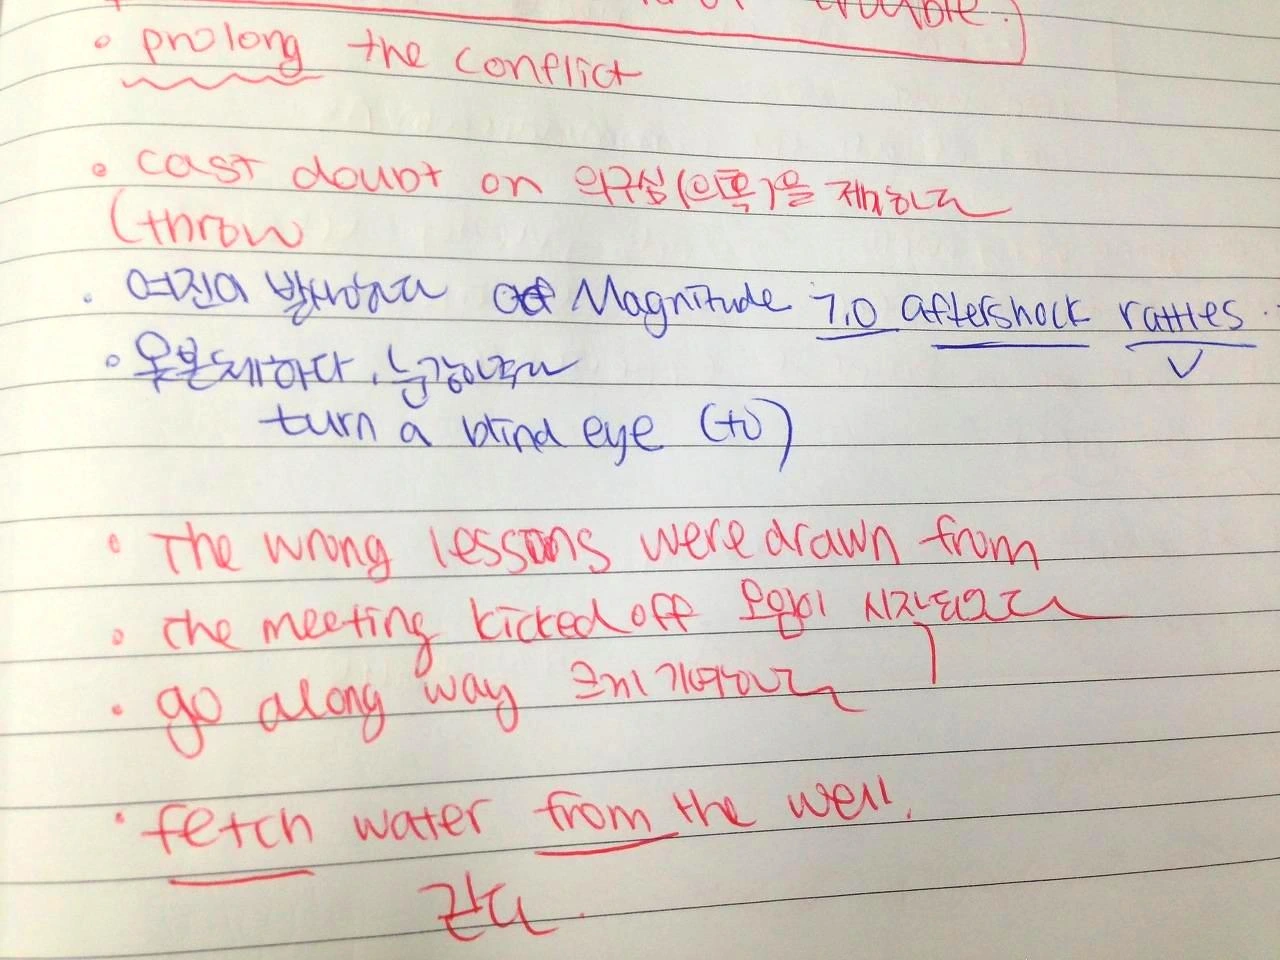 trouble.
• prolong the conflict
• cast doubt on 의구심(의혹)을 제기하다
(throw
• 여진이 발생하다 Magnitude 7.0 aftershock rattles.
• 못본체하다, 눈감아주다
turn a blind eye (to)
• The wrong lessons were drawn from
• the meeting kicked off 모임이 시작되었다
• go along way 크게 기여하다
• fetch water from the well.
긷다.